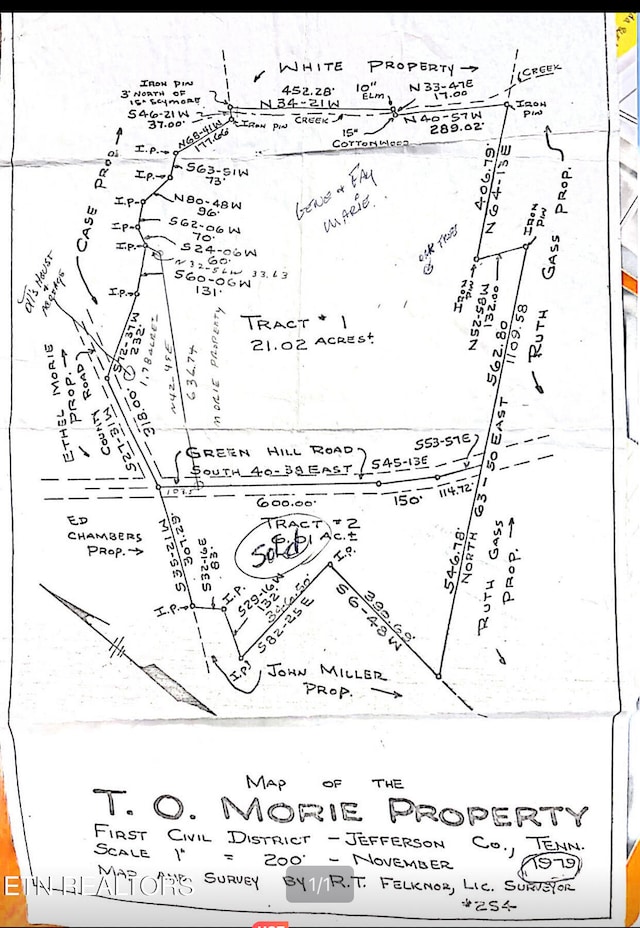 WHITE PROPERTY
CREEK
IRON PIN
3' NORTH OF
15" SCYMORE
452.28'
N34-21W
10"
ELM
N33-47E
17.00
IRON
PIN
S46-21W
37.00'
IRON PIN
CREEK
15"
COTTONWOOD
N40-57W
289.02'
N68-41W
177.66'
I.P.
S63-51W
73'
I.P.
N80-48W
96'
I.P.
S62-06W
70'
I.P.
S24-06W
60'
N32-56W 33.63
S60-06W
131'
I.P.
CASE PROP.
GENE & FAY
MARIE
OAK TREE
406.79'
N64-13E
IRON
PIN
IRON
PIN
N52-58W
132.00'
RUTH GASS PROP.
S72-37W
232'
1.78 ACRES
N42-45E
636.74
MORIE PROPERTY
TRACT #1
21.02 ACRES±
562.80
1109.58
ETHEL MORIE
PROP.
COUNTY ROAD
S27-31W
318.00'
GREEN HILL ROAD
SOUTH 40-38 EAST
S45-13E
S53-57E
600.00'
150'
114.72'
546.78'
NORTH 63-50 EAST
ED
CHAMBERS
PROP.
TRACT #2
6.01 AC.±
Sold
S35-21W
307.29
S32-16E
83'
I.P.
I.P.
S29-16W
132'
I.P.
S82-25E
I.P.
390.69'
S6-43W
RUTH GASS
PROP.
JOHN MILLER
PROP.
MAP OF THE
T. O. MORIE PROPERTY
FIRST CIVIL DISTRICT - JEFFERSON CO., TENN.
SCALE 1" = 200' - NOVEMBER 1979
MAP AND SURVEY BY R.T. FELKNOR, LIC. SURVEYOR
#254
ETN REALTORS
1/1